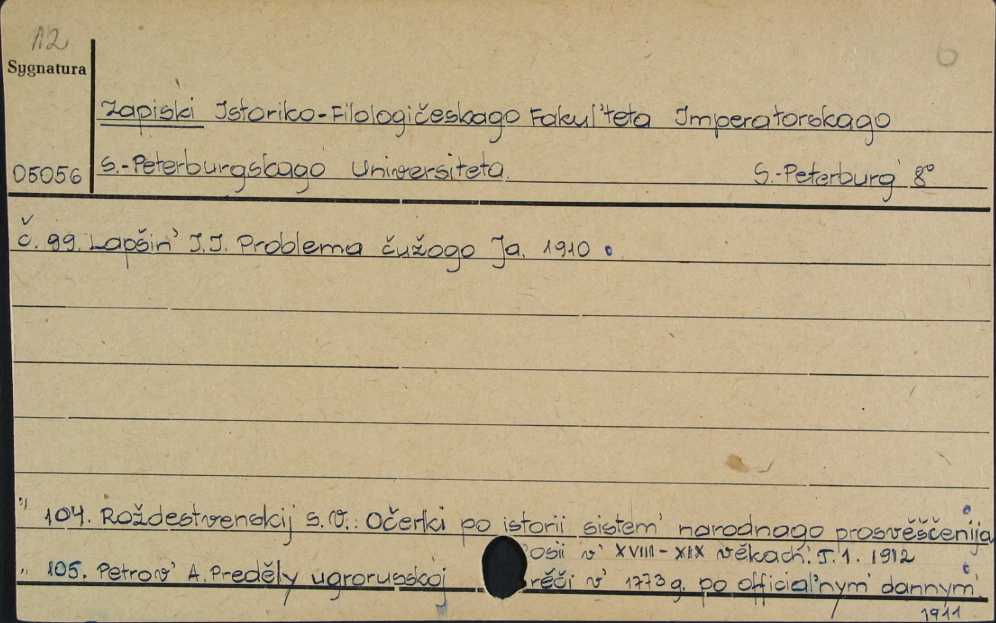 12
6
Sygnatura
Zapiski Istoriko-Filologičeskago Fakul'teta Imperatorskago
05056 S.-Peterburgskago Universiteta. S.-Peterburg' 8°
č. 99. Lapšin' J.J. Problema čužogo Ja. 1910
" 104. Roždestvenskij S.V.: Očerki po istorii sistem' narodnago prosvěščenija
osii v' XVIII-XIX věkach'. T.1. 1912
" 105. Petrov' A. Preděly ugrorusskoj rěči v' 1773g. po official'nym' dannym'.
1911